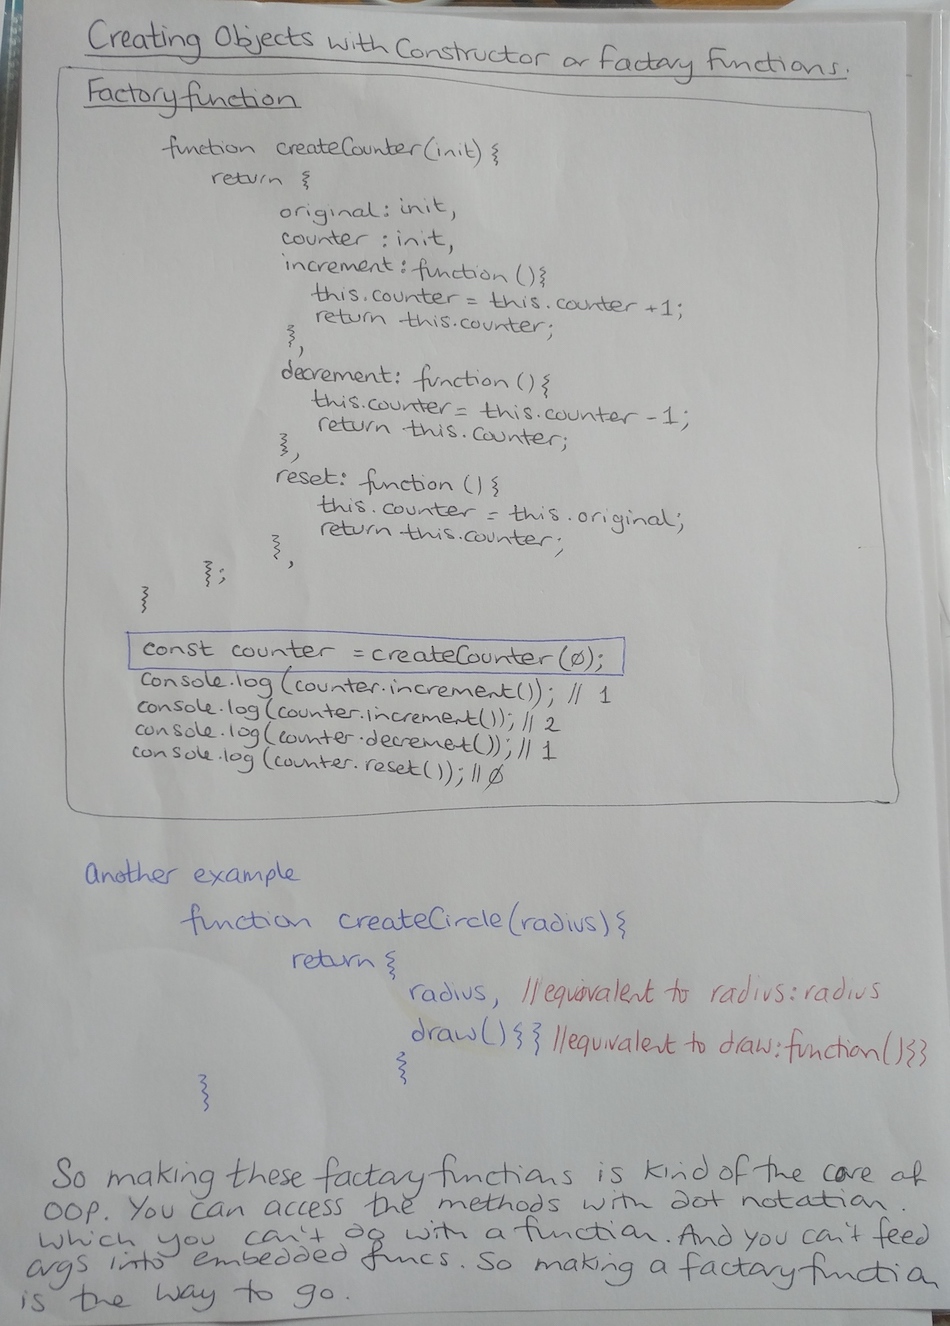 Creating Objects with Constructor or Factory Functions.
Factory function
function createCounter(init) {
return {
original: init,
counter : init,
increment: function (){
this.counter = this.counter +1;
return this.counter;
},
decrement: function () {
this.counter = this.counter -1;
return this.counter;
},
reset: function () {
this.counter = this.original;
return this.counter;
},
};
}
const counter = createCounter(0);
console.log (counter.increment()); // 1
console.log (counter.increment()); // 2
console.log (counter.decremet()); // 1
console.log (counter.reset()); // 0
Another example
function createCircle(radius){
return {
radius, //equivalent to radius: radius
draw(){} //equivalent to draw: function(){}
}
}
So making these factory functions is kind of the core of
OOP. You can access the methods with dot notation.
which you can't do with a function. And you can't feed
args into embedded funcs. So making a factory function
is the way to go.